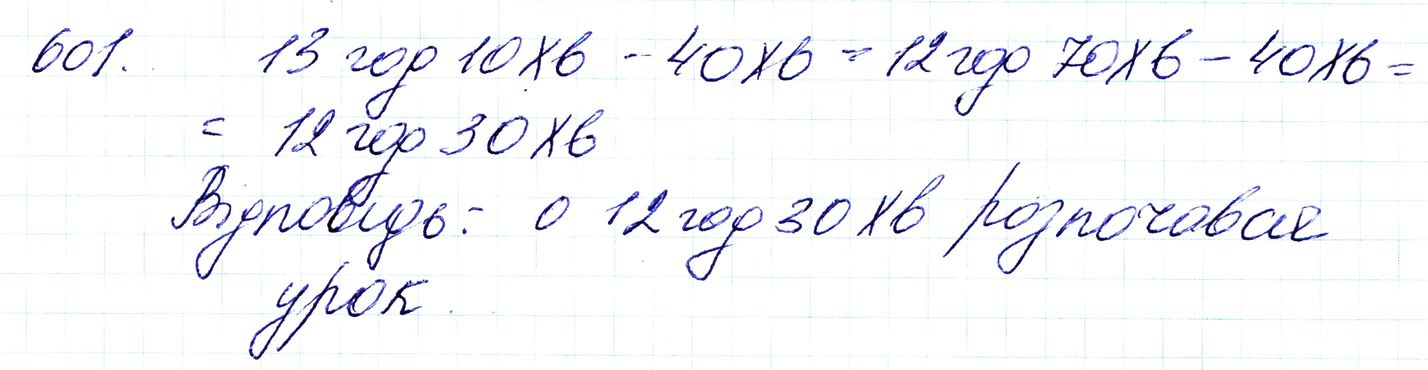 601. 13 год 10 хв - 40 хв = 12 год 70 хв - 40 хв =
= 12 год 30 хв
Відповідь: о 12 год 30 хв розпочався
урок.